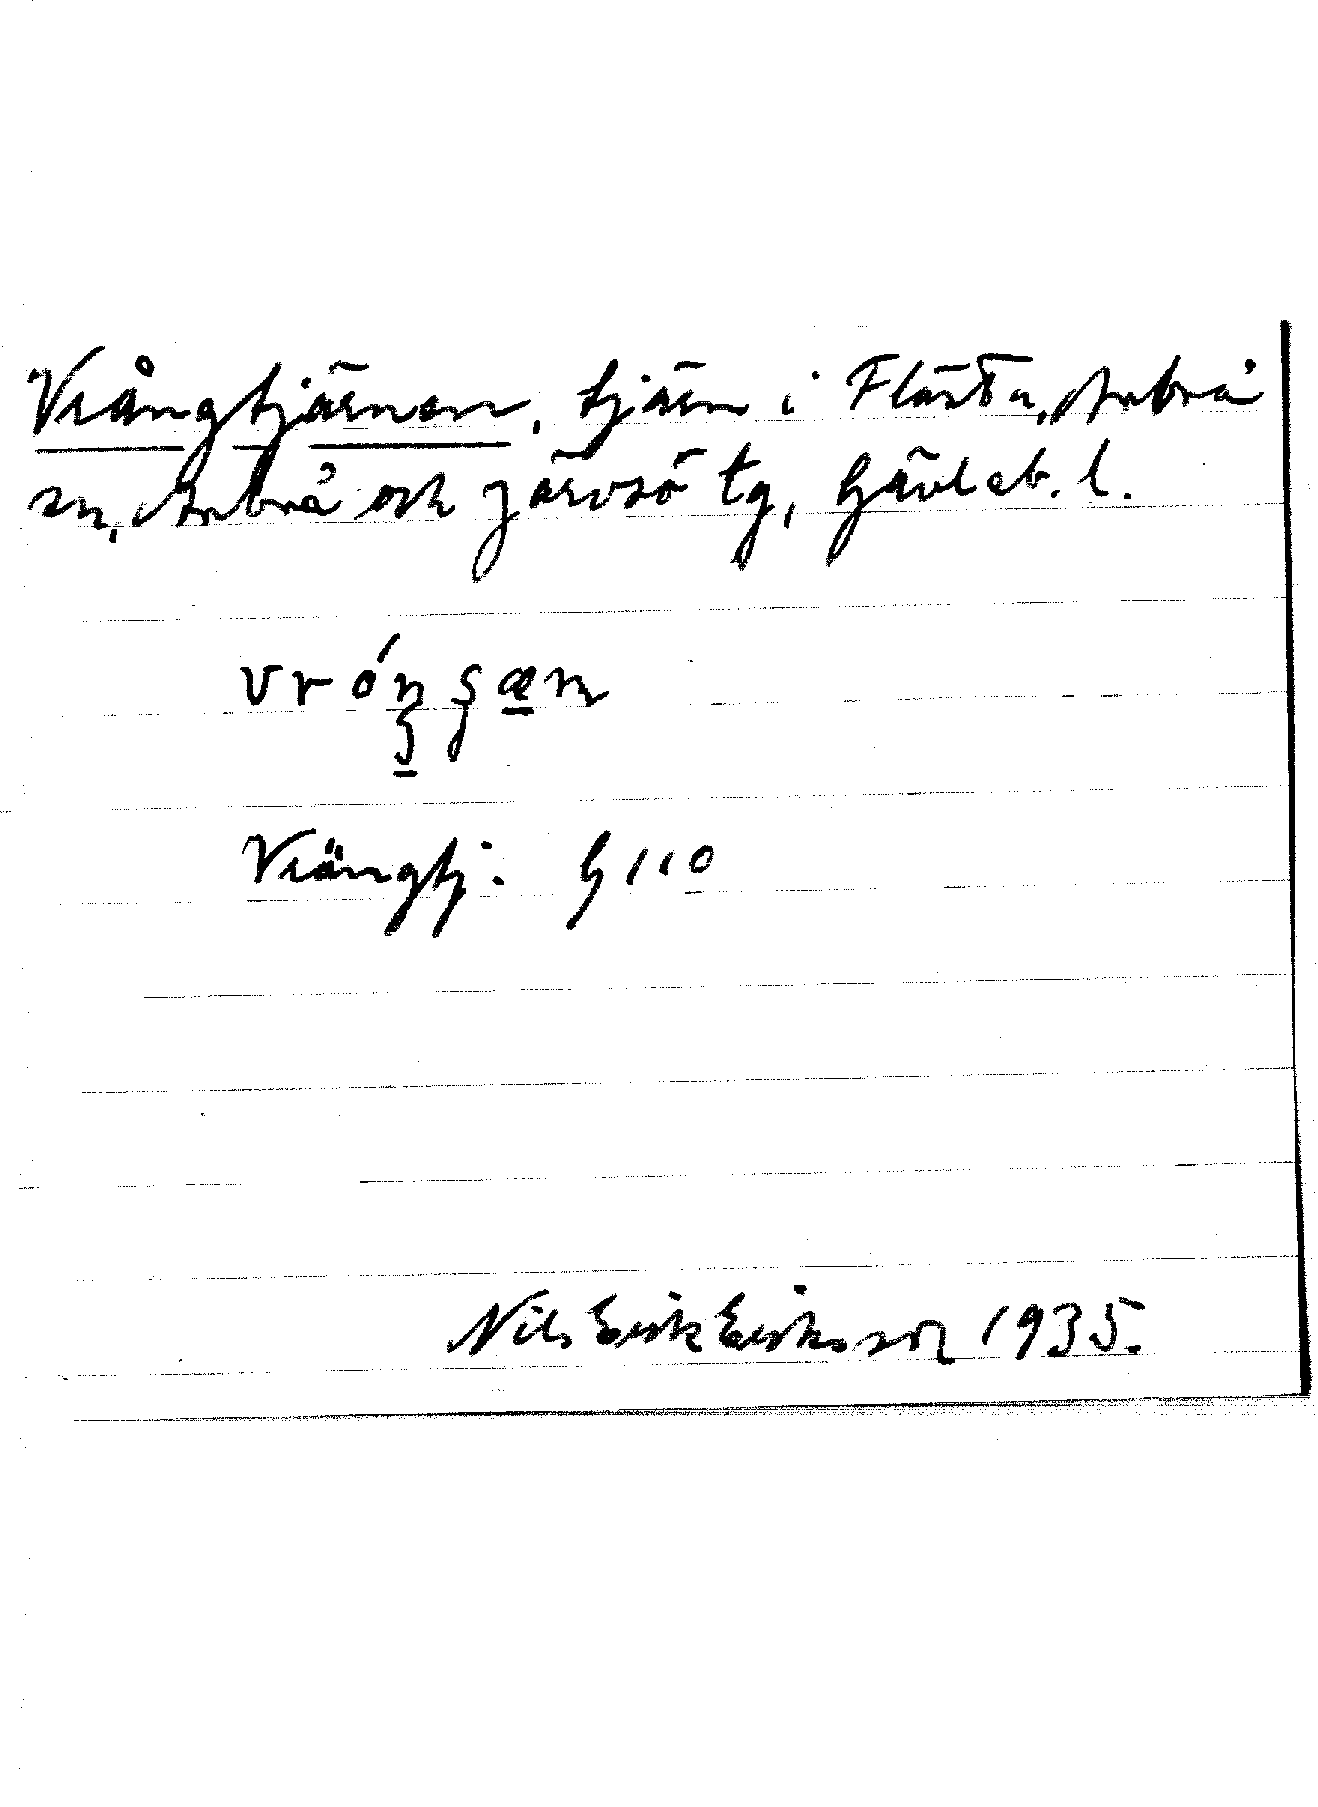 Vrångtjärnen, tjärn i Flästa, Arbrå
sn, Arbrå och Järvsö tg, Gävleb. l.
vróŋʂæn
Vrångtj. G 110
Nils Erik Eriksson 1935.